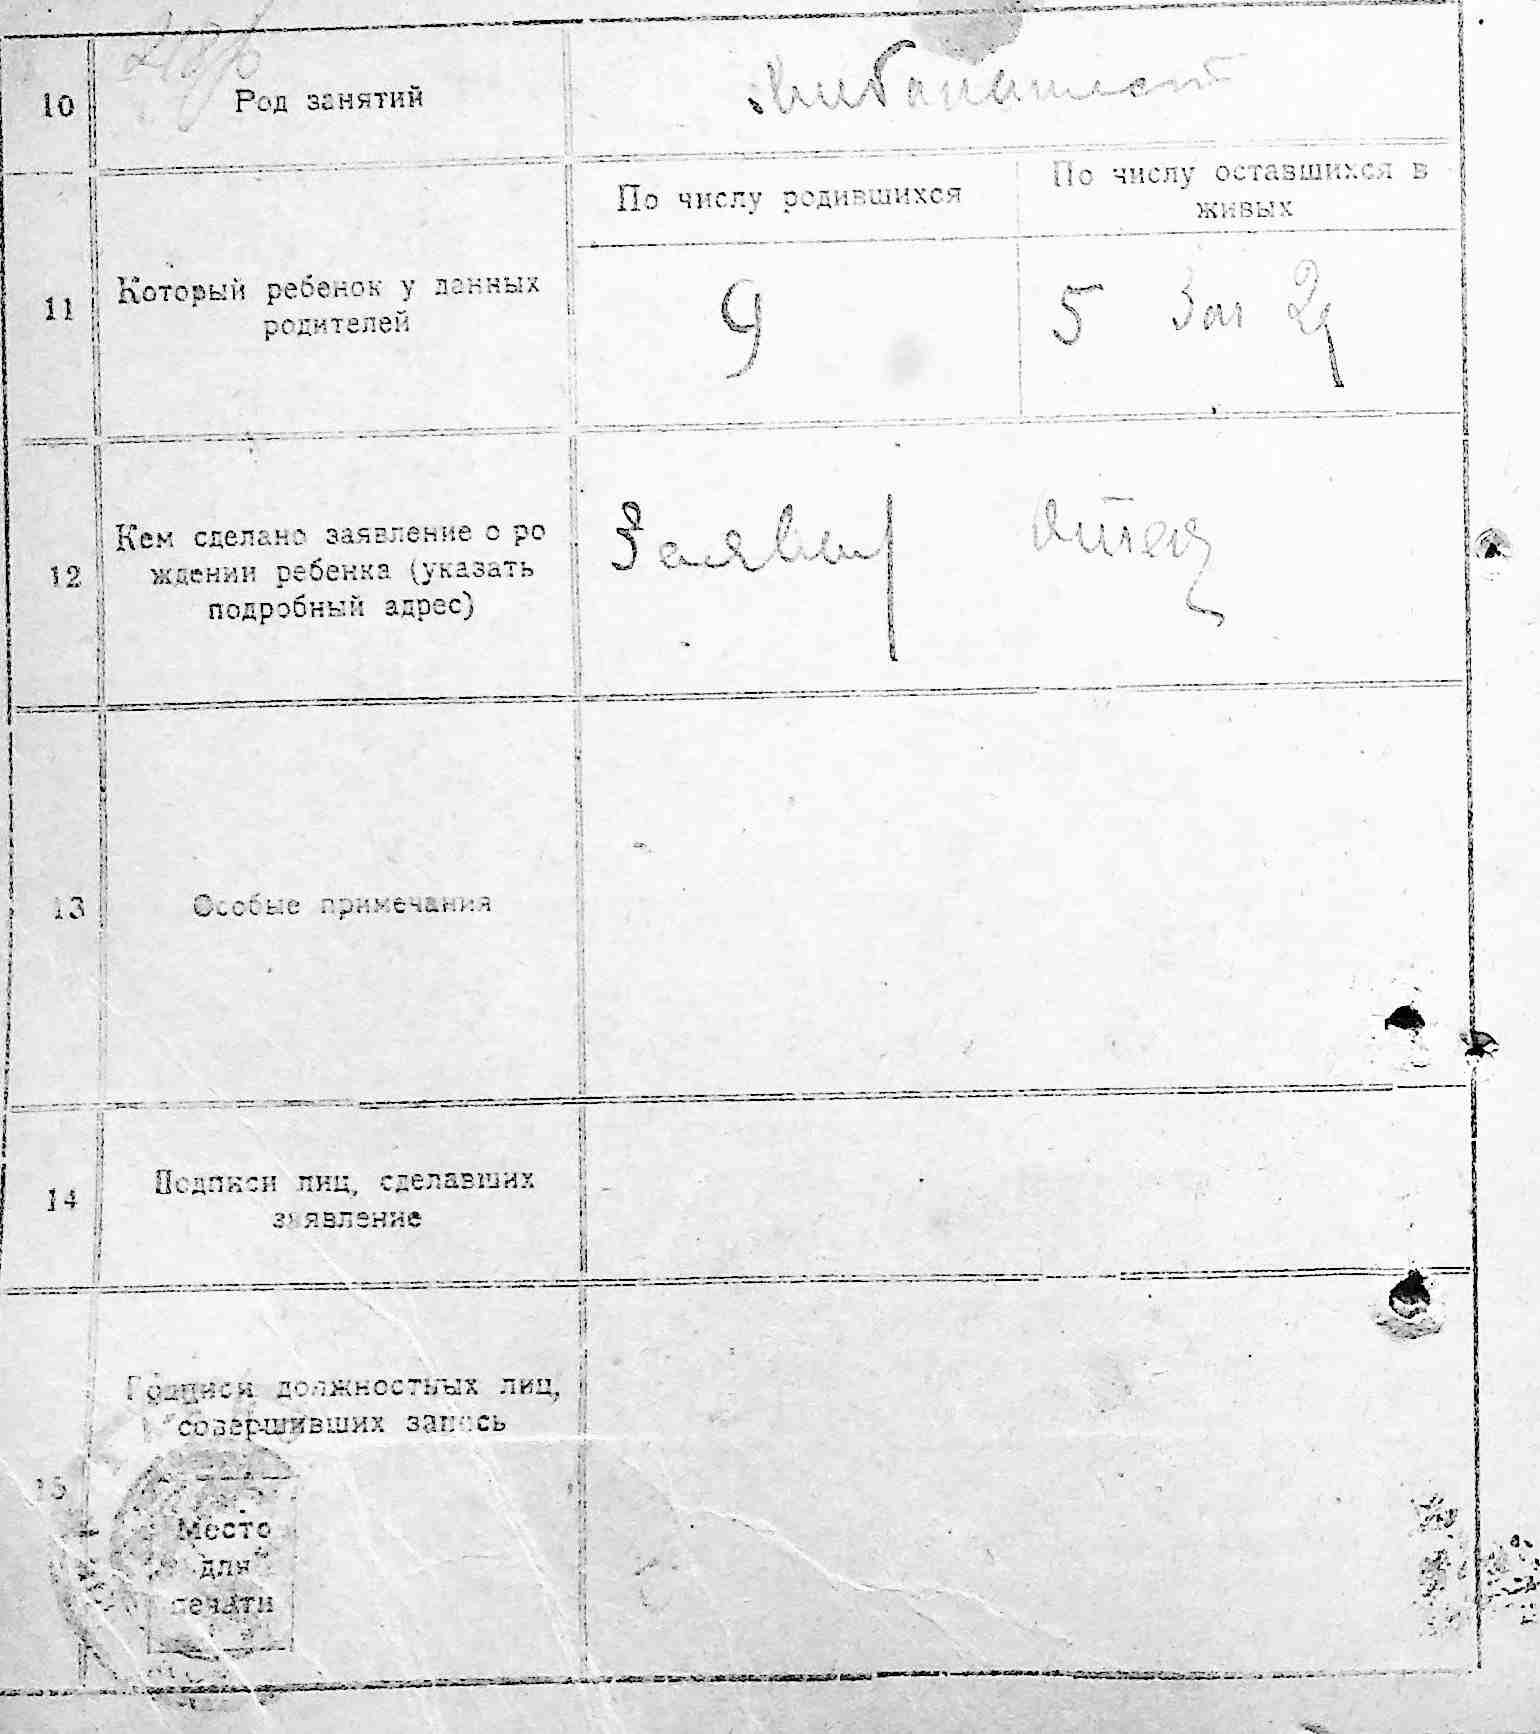 10
Род занятий
По числу родившихся
По числу оставшихся в
живых
11
Который ребенок у данных
родителей
9
5
12
Кем сделано заявление о ро
ждении ребенка (указать
подробный адрес)
отец
13
Особые примечания
14
Подписи лиц, сделавших
заявление
Подписи должностных лиц,
совершивших запись
15
Место
для
печати